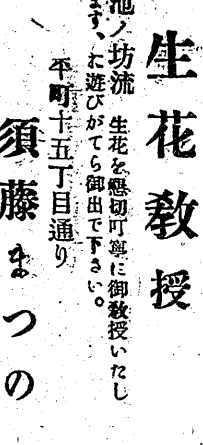 生花敎授
池ノ坊流 生花を懇切叮寧に御敎授いたし
ます、お遊びがてら御出で下さい。
平町十五丁目通り
須藤まつの